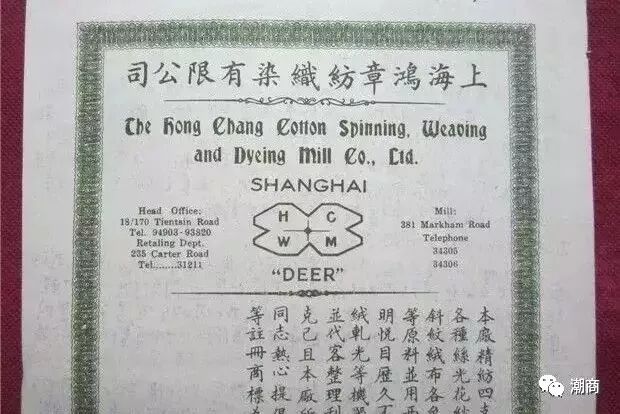 上海鴻章紡織染有限公司
The Hong Chang Cotton Spinning, Weaving
and Dyeing Mill Co., Ltd.
SHANGHAI
Head Office:
18/170 Tientsin Road
Tel. 94903-93820
Retaling Dept.
235 Carter Road
Tel.......31211
H C
W M
"DEER"
Mill:
381 Markham Road
Telephone
34305
34306
本廠精紡四
各種絲光花
斜紋絨布各
等原料並用
明悅目歷久不
絨軋光等機
並代客整理
克己且本廠
同志熱心提
等註冊商標
潮商